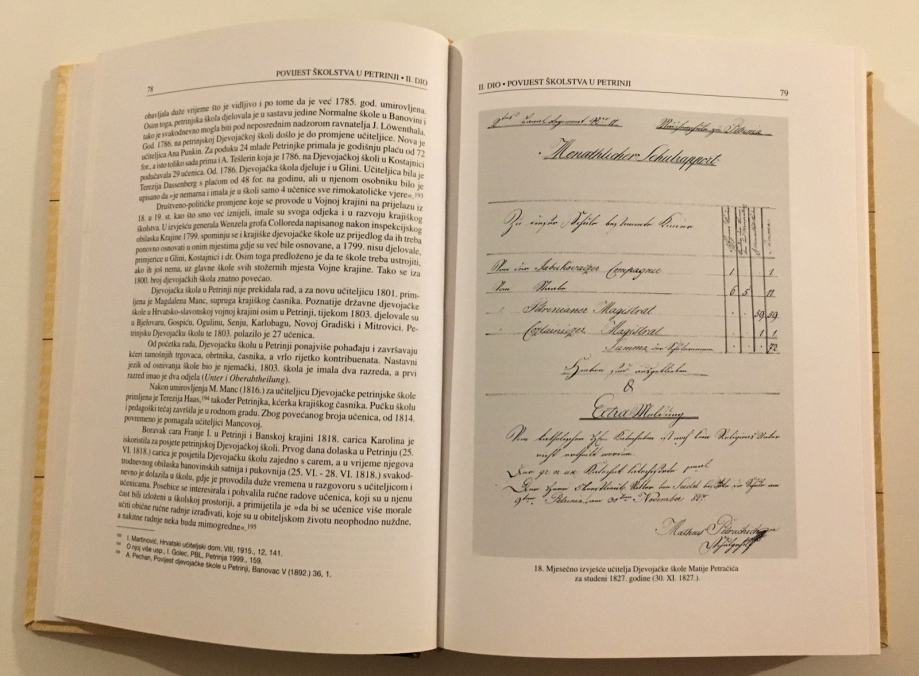 78
POVIJEST ŠKOLSTVA U PETRINJI • II. DIO
obavljala duže vrijeme što je vidljivo i po tome da je već 1785. god. umirovljena.
Osim toga, petrinjska škola djelovala je u sastavu jedine Normalne škole u Banovini i
tako je svakodnevno mogla biti pod neposrednim nadzorom ravnatelja J. Löwenthala.
God. 1786. na petrinjskoj Djevojačkoj školi došlo je do promjene učiteljice. Nova je
učiteljica Ana Punkin. Za poduku 24 mlade Petrinjke primala je godišnju plaću od 72
for., a isto toliko sada prima i A. Tešlerin koja je 1786. na Djevojačkoj školi u Kostajnici
podučavala 29 učenica. Od 1786. Djevojačka škola djeluje i u Glini. Učiteljica bila je
Terezija Dassenberg s plaćom od 48 for. na godinu, ali u njenom osobniku bilo je
upisano da »je nemarna i imala je u školi samo 4 učenice sve rimokatoličke vjere«.193
Društveno-političke promjene koje se provode u Vojnoj krajini na prijelazu iz
18. u 19. st. kao što smo već iznijeli, imale su svoga odjeka i u razvoju krajiškog
školstva. U izvješću generala Wenzela grofa Colloreda napisanog nakon inspekcijskog
obilaska Krajine 1799. spominju se i krajiške djevojačke škole uz prijedlog da ih treba
ponovno osnovati u onim mjestima gdje su već bile osnovane, a 1799. nisu djelovale,
primjerice u Glini, Kostajnici i dr. Osim toga predloženo je da te škole treba ustrojiti,
ako ih još nema, uz glavne škole svih stožernih mjesta Vojne krajine. Tako se iza
1800. broj djevojačkih škola znatno povećao.
Djevojačka škola u Petrinji nije prekidala rad, a za novu učiteljicu 1801. prim-
ljena je Magdalena Manc, supruga krajiškog časnika. Poznatije državne djevojačke
škole u Hrvatsko-slavonskoj vojnoj krajini osim u Petrinji, tijekom 1803. djelovale su
u Bjelovaru, Gospiću, Ogulinu, Senju, Karlobagu, Novoj Gradiški i Mitrovici. Pe-
trinjsku Djevojačku školu te 1803. polazilo je 27 učenica.
Od početka rada, Djevojačku školu u Petrinji ponajviše pohađaju i završavaju
kćeri tamošnjih trgovaca, obrtnika, časnika, a vrlo rijetko kontribuenata. Nastavni
jezik od osnivanja škole bio je njemački, 1803. škola je imala dva razreda, a prvi
razred imao je dva odjela (Unter i Oberabtheilung).
Nakon umirovljenja M. Manc (1816.) za učiteljicu Djevojačke petrinjske škole
primljena je Terezija Haas,194 također Petrinjka, kćerka krajiškog časnika. Pučku školu
i pedagoški tečaj završila je u rodnom gradu. Zbog povećanog broja učenica, od 1814.
povremeno je pomagala učiteljici Mancovoj.
Boravak cara Franje I. u Petrinji i Banskoj krajini 1818. carica Karolina je
iskoristila za posjete petrinjskoj Djevojačkoj školi. Prvog dana dolaska u Petrinju (25.
VI. 1818.) carica je posjetila Djevojačku školu zajedno s carem, a u vrijeme njegova
trodnevnog obilaska banovinskih satnija i pukovnija (25. VI. - 28. VI. 1818.) svakod-
nevno je dolazila u školu, gdje je provodila duže vremena u razgovoru s učiteljicom i
učenicama. Posebice se interesirala i pohvalila ručne radove učenica, koji su u njenu
čast bili izloženi u školskoj prostoriji, a primijetila je »da bi se učenice više morale
učiti obične ručne radnje izrađivati, koje su u obiteljskom životu neophodno nuždne,
a nakitne radnje neka budu mimogredne«.195
193 I. Martinović, Hrvatski učiteljski dom, VIII, 1915., 12, 141.
194 O njoj više usp., I. Golec, PBL, Petrinja 1999., 159.
195 A. Pechan, Povijest djevojačke škole u Petrinji, Banovac V (1892.) 36, 1.
II. DIO • POVIJEST ŠKOLSTVA U PETRINJI
79
Petrinia
Monathlicher Schulrapport
Compagnie 1 1
6 5 11
Petrinianer Magistrat 59 59
Magistrat 1 1
Summa 72
8
Extra Meldung
Petrinia
Mathias Petrachich
18. Mjesečno izvješće učitelja Djevojačke škole Matije Petračića
za studeni 1827. godine (30. XI. 1827.).